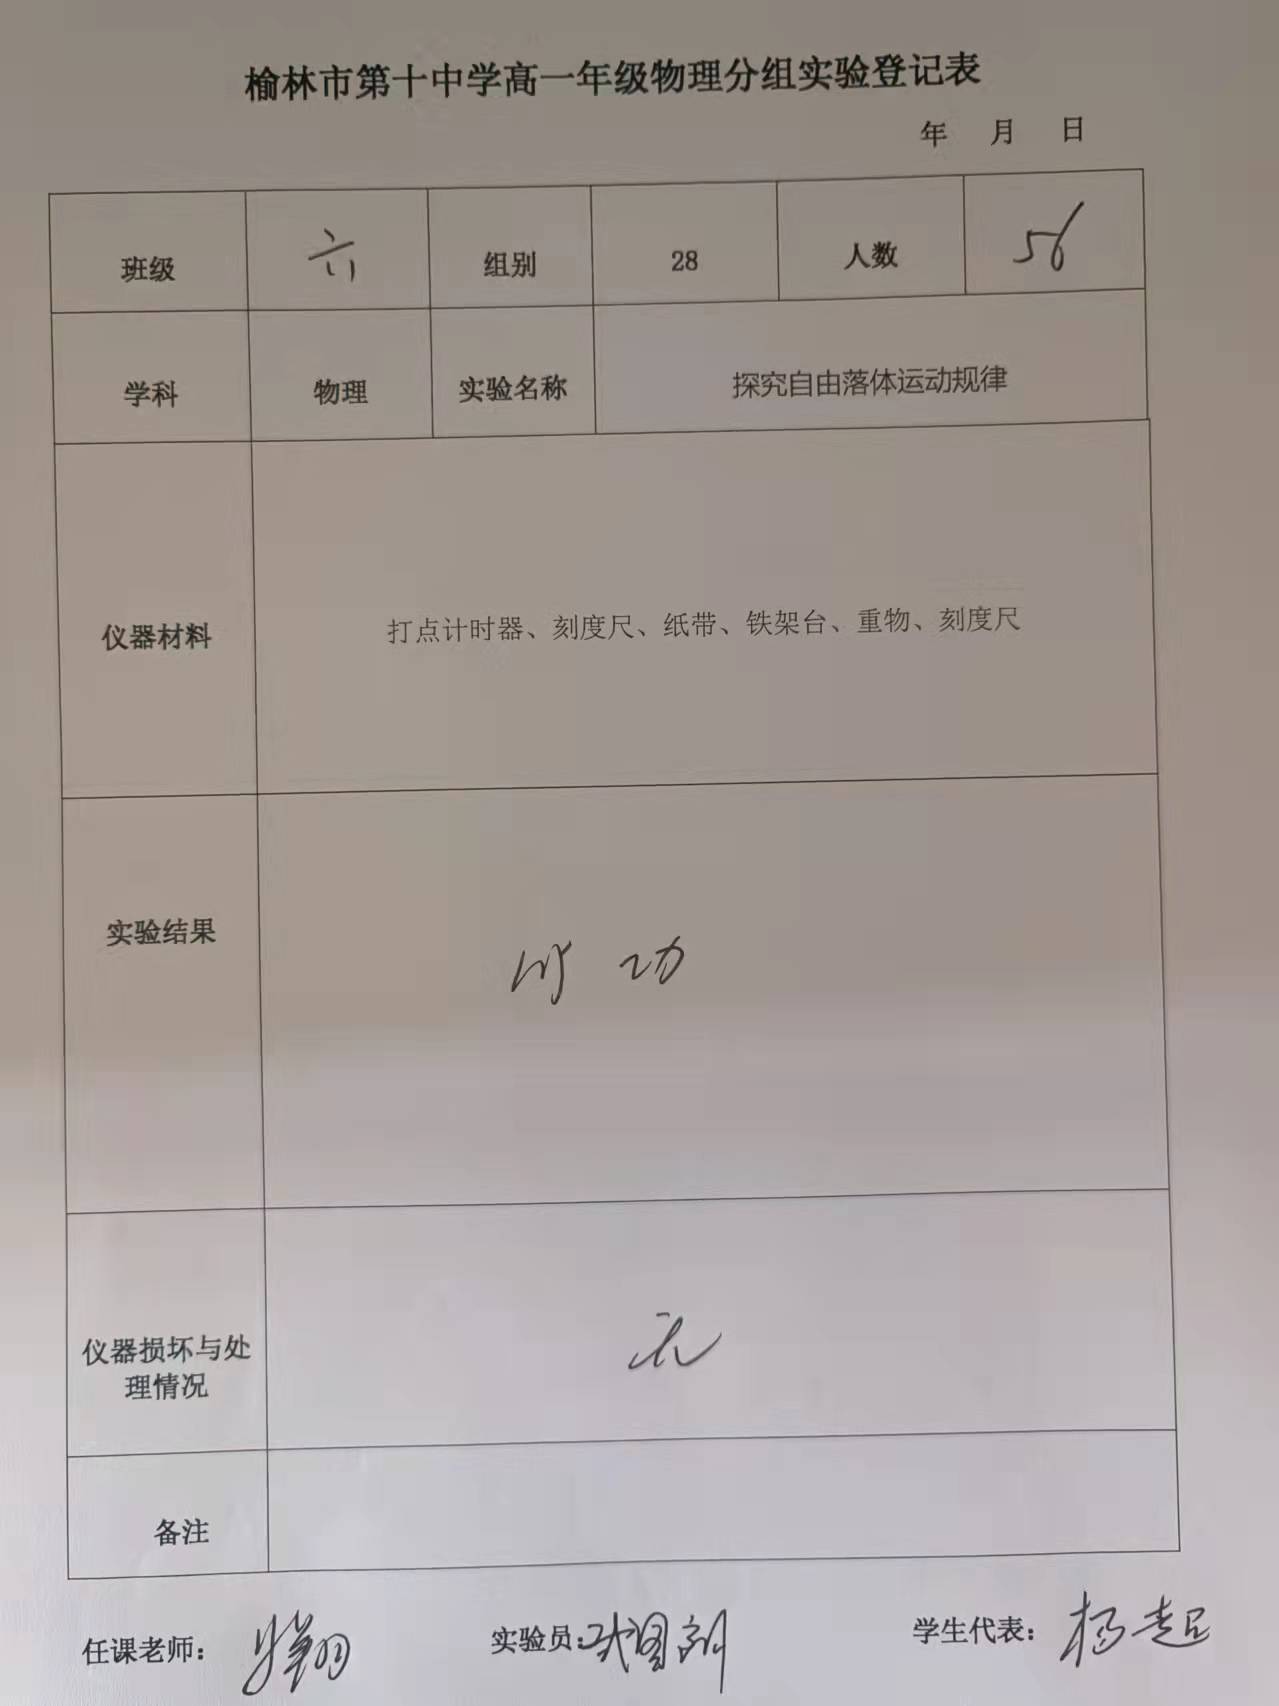 榆林市第十中学高一年级物理分组实验登记表
年 月 日
班级 六 组别 28 人数 56
学科 物理 实验名称 探究自由落体运动规律
仪器材料 打点计时器、刻度尺、纸带、铁架台、重物、刻度尺
实验结果 成功
仪器损坏与处
理情况 无
备注
任课老师: 实验员: 学生代表: 杨超